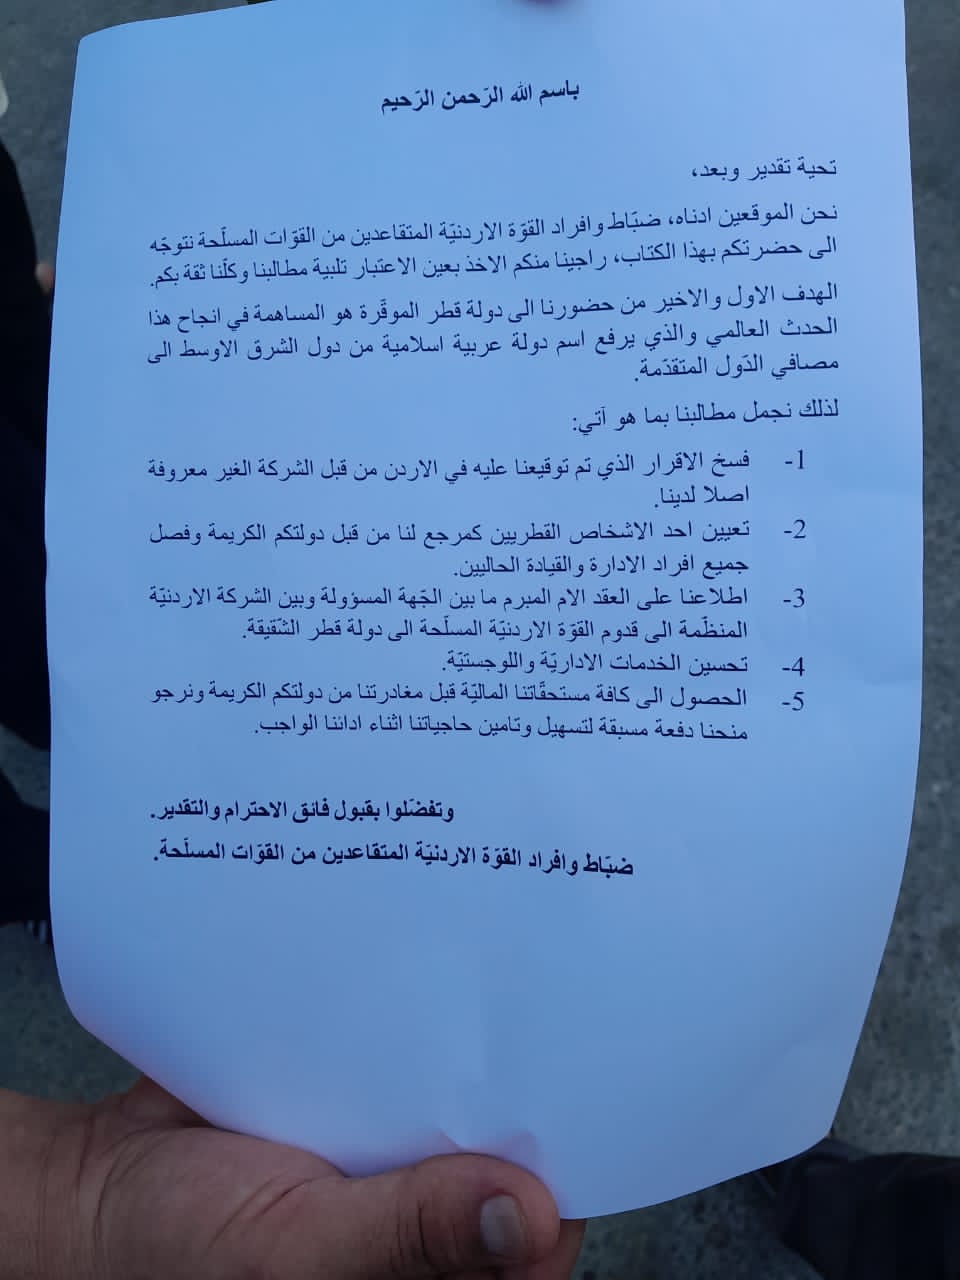 باسم الله الرّحمن الرّحيم
تحية تقدير وبعد،
نحن الموقعين ادناه، ضبّاط وافراد القوّة الاردنيّة المتقاعدين من القوّات المسلّحة نتوجّه
الى حضرتكم بهذا الكتاب، راجينا منكم الاخذ بعين الاعتبار تلبية مطالبنا وكلّنا ثقة بكم.
الهدف الاول والاخير من حضورنا الى دولة قطر الموقّرة هو المساهمة في انجاح هذا
الحدث العالمي والذي يرفع اسم دولة عربية اسلامية من دول الشرق الاوسط الى
مصافي الدّول المتقدّمة.
لذلك نجمل مطالبنا بما هو آتي:
1- فسخ الاقرار الذي تم توقيعنا عليه في الاردن من قبل الشركة الغير معروفة
اصلا لدينا.
2- تعيين احد الاشخاص القطريين كمرجع لنا من قبل دولتكم الكريمة وفصل
جميع افراد الادارة والقيادة الحاليين.
3- اطلاعنا على العقد الام المبرم ما بين الجّهة المسؤولة وبين الشركة الاردنيّة
المنظّمة الى قدوم القوّة الاردنيّة المسلّحة الى دولة قطر الشّقيقة.
4- تحسين الخدمات الاداريّة واللوجستيّة.
5- الحصول الى كافة مستحقّاتنا الماليّة قبل مغادرتنا من دولتكم الكريمة ونرجو
منحنا دفعة مسبقة لتسهيل وتامين حاجياتنا اثناء ادائنا الواجب.
وتفضّلوا بقبول فائق الاحترام والتقدير.
ضبّاط وافراد القوّة الاردنيّة المتقاعدين من القوّات المسلّحة.